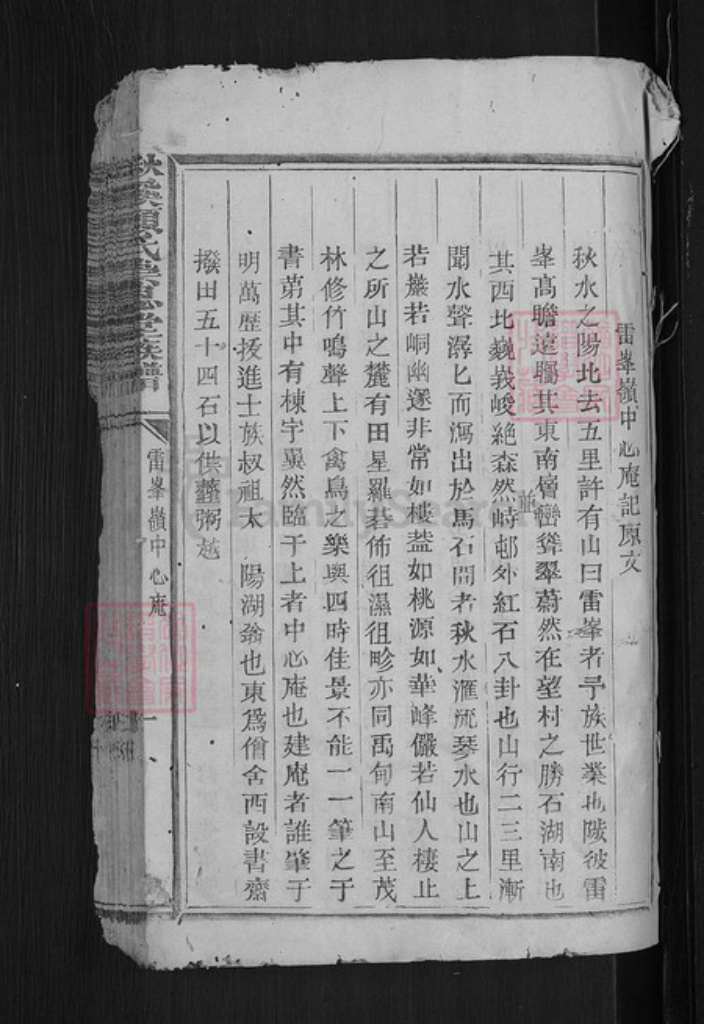 雷峯嶺中心庵記原文
秋水之陽北去五里許有山曰雷峯者予族世業也陟彼雷
峯高瞻遠矚其東南層巒聳翠蔚然在望村之勝石湖南也
其西北巍峩峻絶森然峙邨外紅石八卦也山行二三里漸
聞水聲潺匕而瀉出於馬石間者秋水滙㳅琴水也山之上
若巖若峒幽邃非常如樓葢如桃源如華峰儼若仙人棲止
之所山之麓有田星羅碁佈徂濕徂畛亦同禹甸南山至茂
林修竹鳴聲上下禽鳥之樂與四時佳景不能一一筆之于
書第其中有棟宇翼然臨于上者中心庵也建庵者誰肇于
明萬歷授進士族叔祖太 陽湖翁也東爲僧舍西設書齋
撥田五十四石以供虀粥越
氏 堂族譜
雷峯嶺中心庵
一